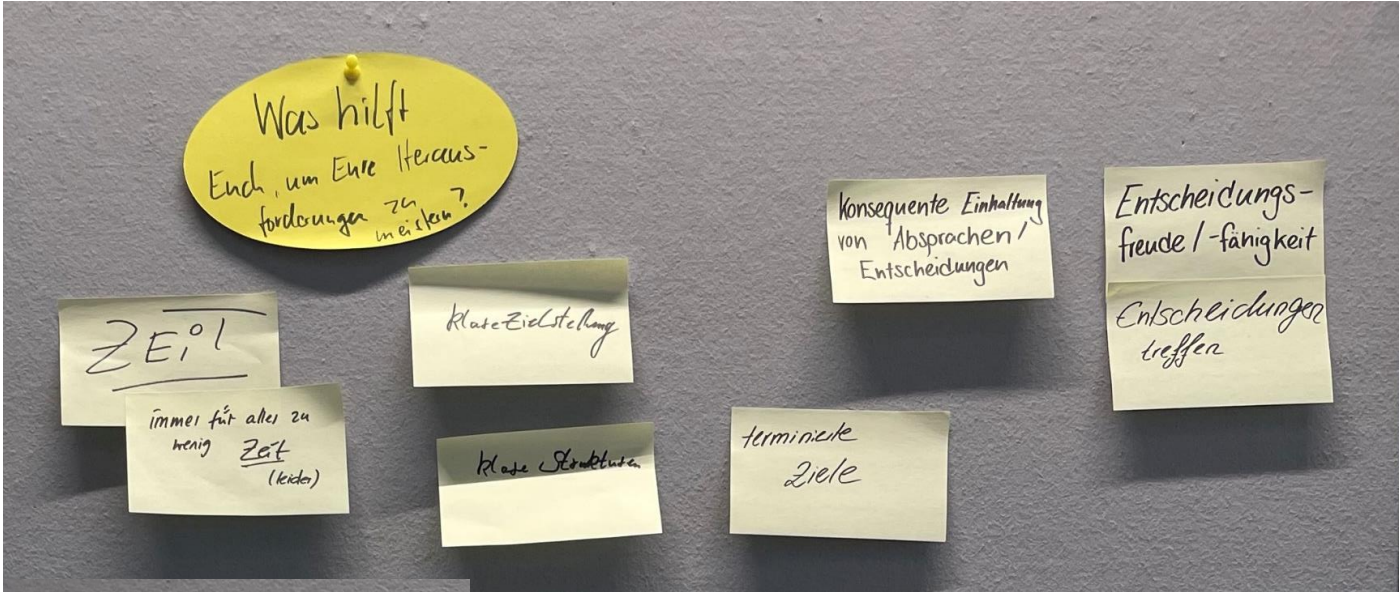 Was hilft
Euch, um Eure Heraus-
forderungen zu
meistern?
ZEiT
immer für alles zu
wenig Zeit
(leider)
klare Zielstellung
klare Strukturen
terminierte
Ziele
Konsequente Einhaltung
von Absprachen/
Entscheidungen
Entscheidungs-
freude/-fähigkeit
Entscheidungen
treffen